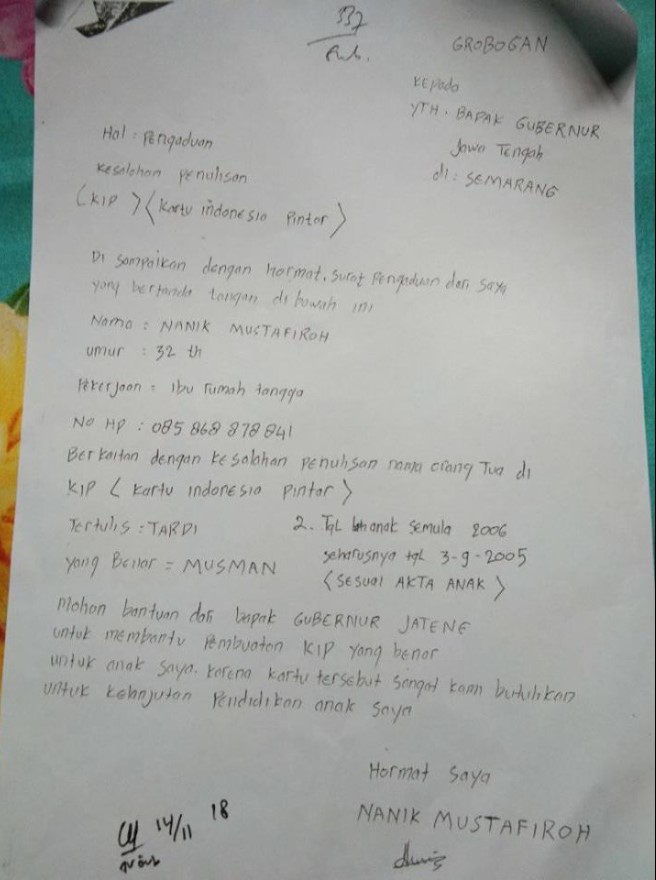 337
GROBOGAN
Kepada
YTH. BAPAK GUBERNUR
Jawa Tengah
di : SEMARANG
Hal : Pengaduan
Kesalahan penulisan
(KIP) (Kartu indonesia Pintar)
Di sampaikan dengan Hormat, surat Pengaduan dari saya
yang bertanda tangan di bawah ini
Nama : NANIK MUSTAFIROH
umur : 32 th
Pekerjaan : ibu rumah tangga
No HP : 085 868 878 841
Berkaitan dengan kesalahan penulisan nama orang Tua di
KIP (Kartu indonesia Pintar)
Tertulis : TARDI
yang Benar = MUSMAN
2. Tgl anak semula 2006
seharusnya tgl 3-9-2005
(SESUAI AKTA ANAK)
Mohon bantuan dari bapak GUBERNUR JATENG
untuk membantu Pembuatan KIP yang benar
untuk anak saya. karena kartu tersebut sangat kami butuhkan
untuk kelanjutan Pendidikan anak saya
Hormat saya
NANIK MUSTAFIROH
14/11 18